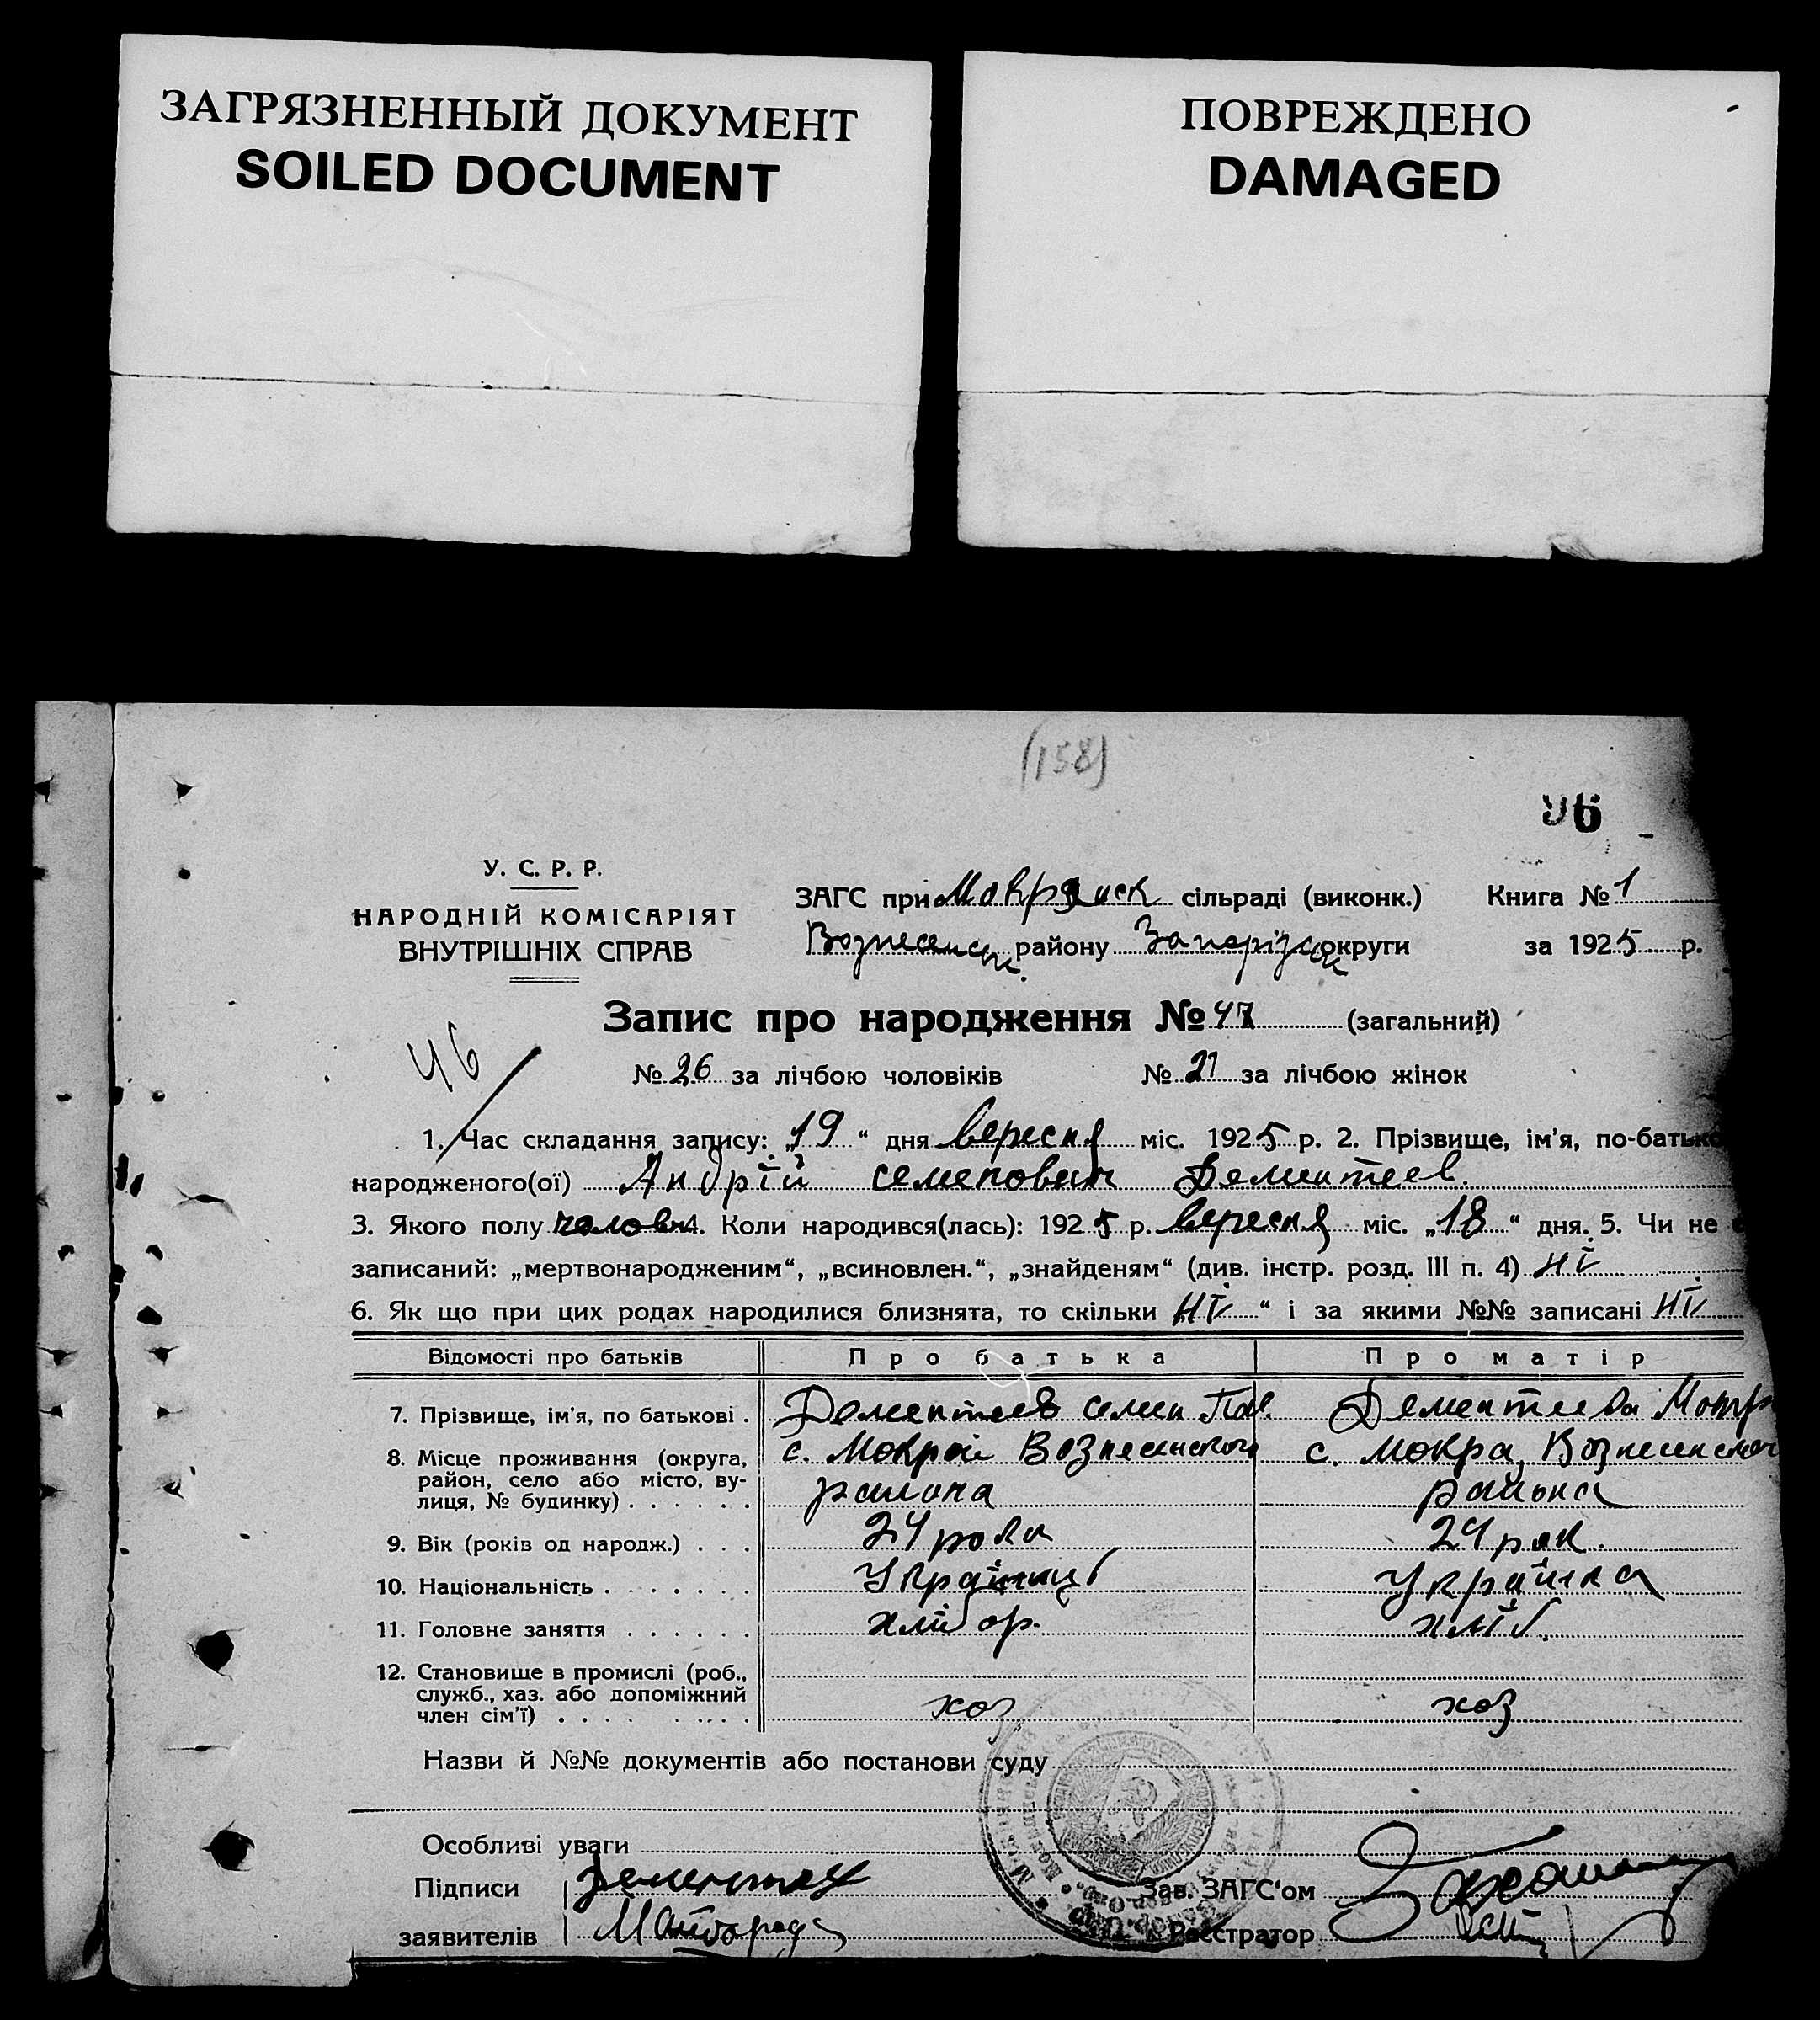 ЗАГРЯЗНЕННЫЙ ДОКУМЕНТ
SOILED DOCUMENT
ПОВРЕЖДЕНО
DAMAGED
(158)
96
У. С. Р. Р.
НАРОДНІЙ КОМІСАРІЯТ
ВНУТРІШНІХ СПРАВ
ЗАГС при сільраді (виконк.) Книга № 1
Вознесенськ. району Запорізьк округи за 1925 р.
Запис про народження № 47 (загальний)
46
№ 26 за лічбою чоловіків № 21 за лічбою жінок
1. Час складання запису: „19“ дня вересня міс. 1925 р. 2. Прізвище, ім'я, по-батько
народженого(ої) Андрій семенович Дементеев.
3. Якого полу чолов 4. Коли народився(лась): 1925 р. вересня міс. „18“ дня. 5. Чи не є
записаний: „мертвонародженим“, „всиновлен.“, „знайденям“ (див. інстр. розд. III п. 4) ні
6. Як що при цих родах народилися близнята, то скільки ні “ і за якими №№ записані ні
Відомості про батьків Про батька Про матір
7. Прізвище, ім'я, по батькові . Дементеев семен Пав. Дементеева Мотр
8. Місце проживання (округа, с. Мокрой Вознесенского с. Мокра, Вознесенског
район, село або місто, ву-
лиця, № будинку) . . . . . . района района
9. Вік (років од народж.) . . . 24 роки 24 рок.
10. Національність . . . . . . . Українець Українка
11. Головне заняття . . . . . . хлібор. хліб.
12. Становище в промислі (роб.,
служб., хаз. або допоміжний
член сім'ї) . . . . . . . . . хоз хоз
Назви й №№ документів або постанови суду
Особливі уваги
Підписи Зав. ЗАГС‘ом
заявителів Реєстратор